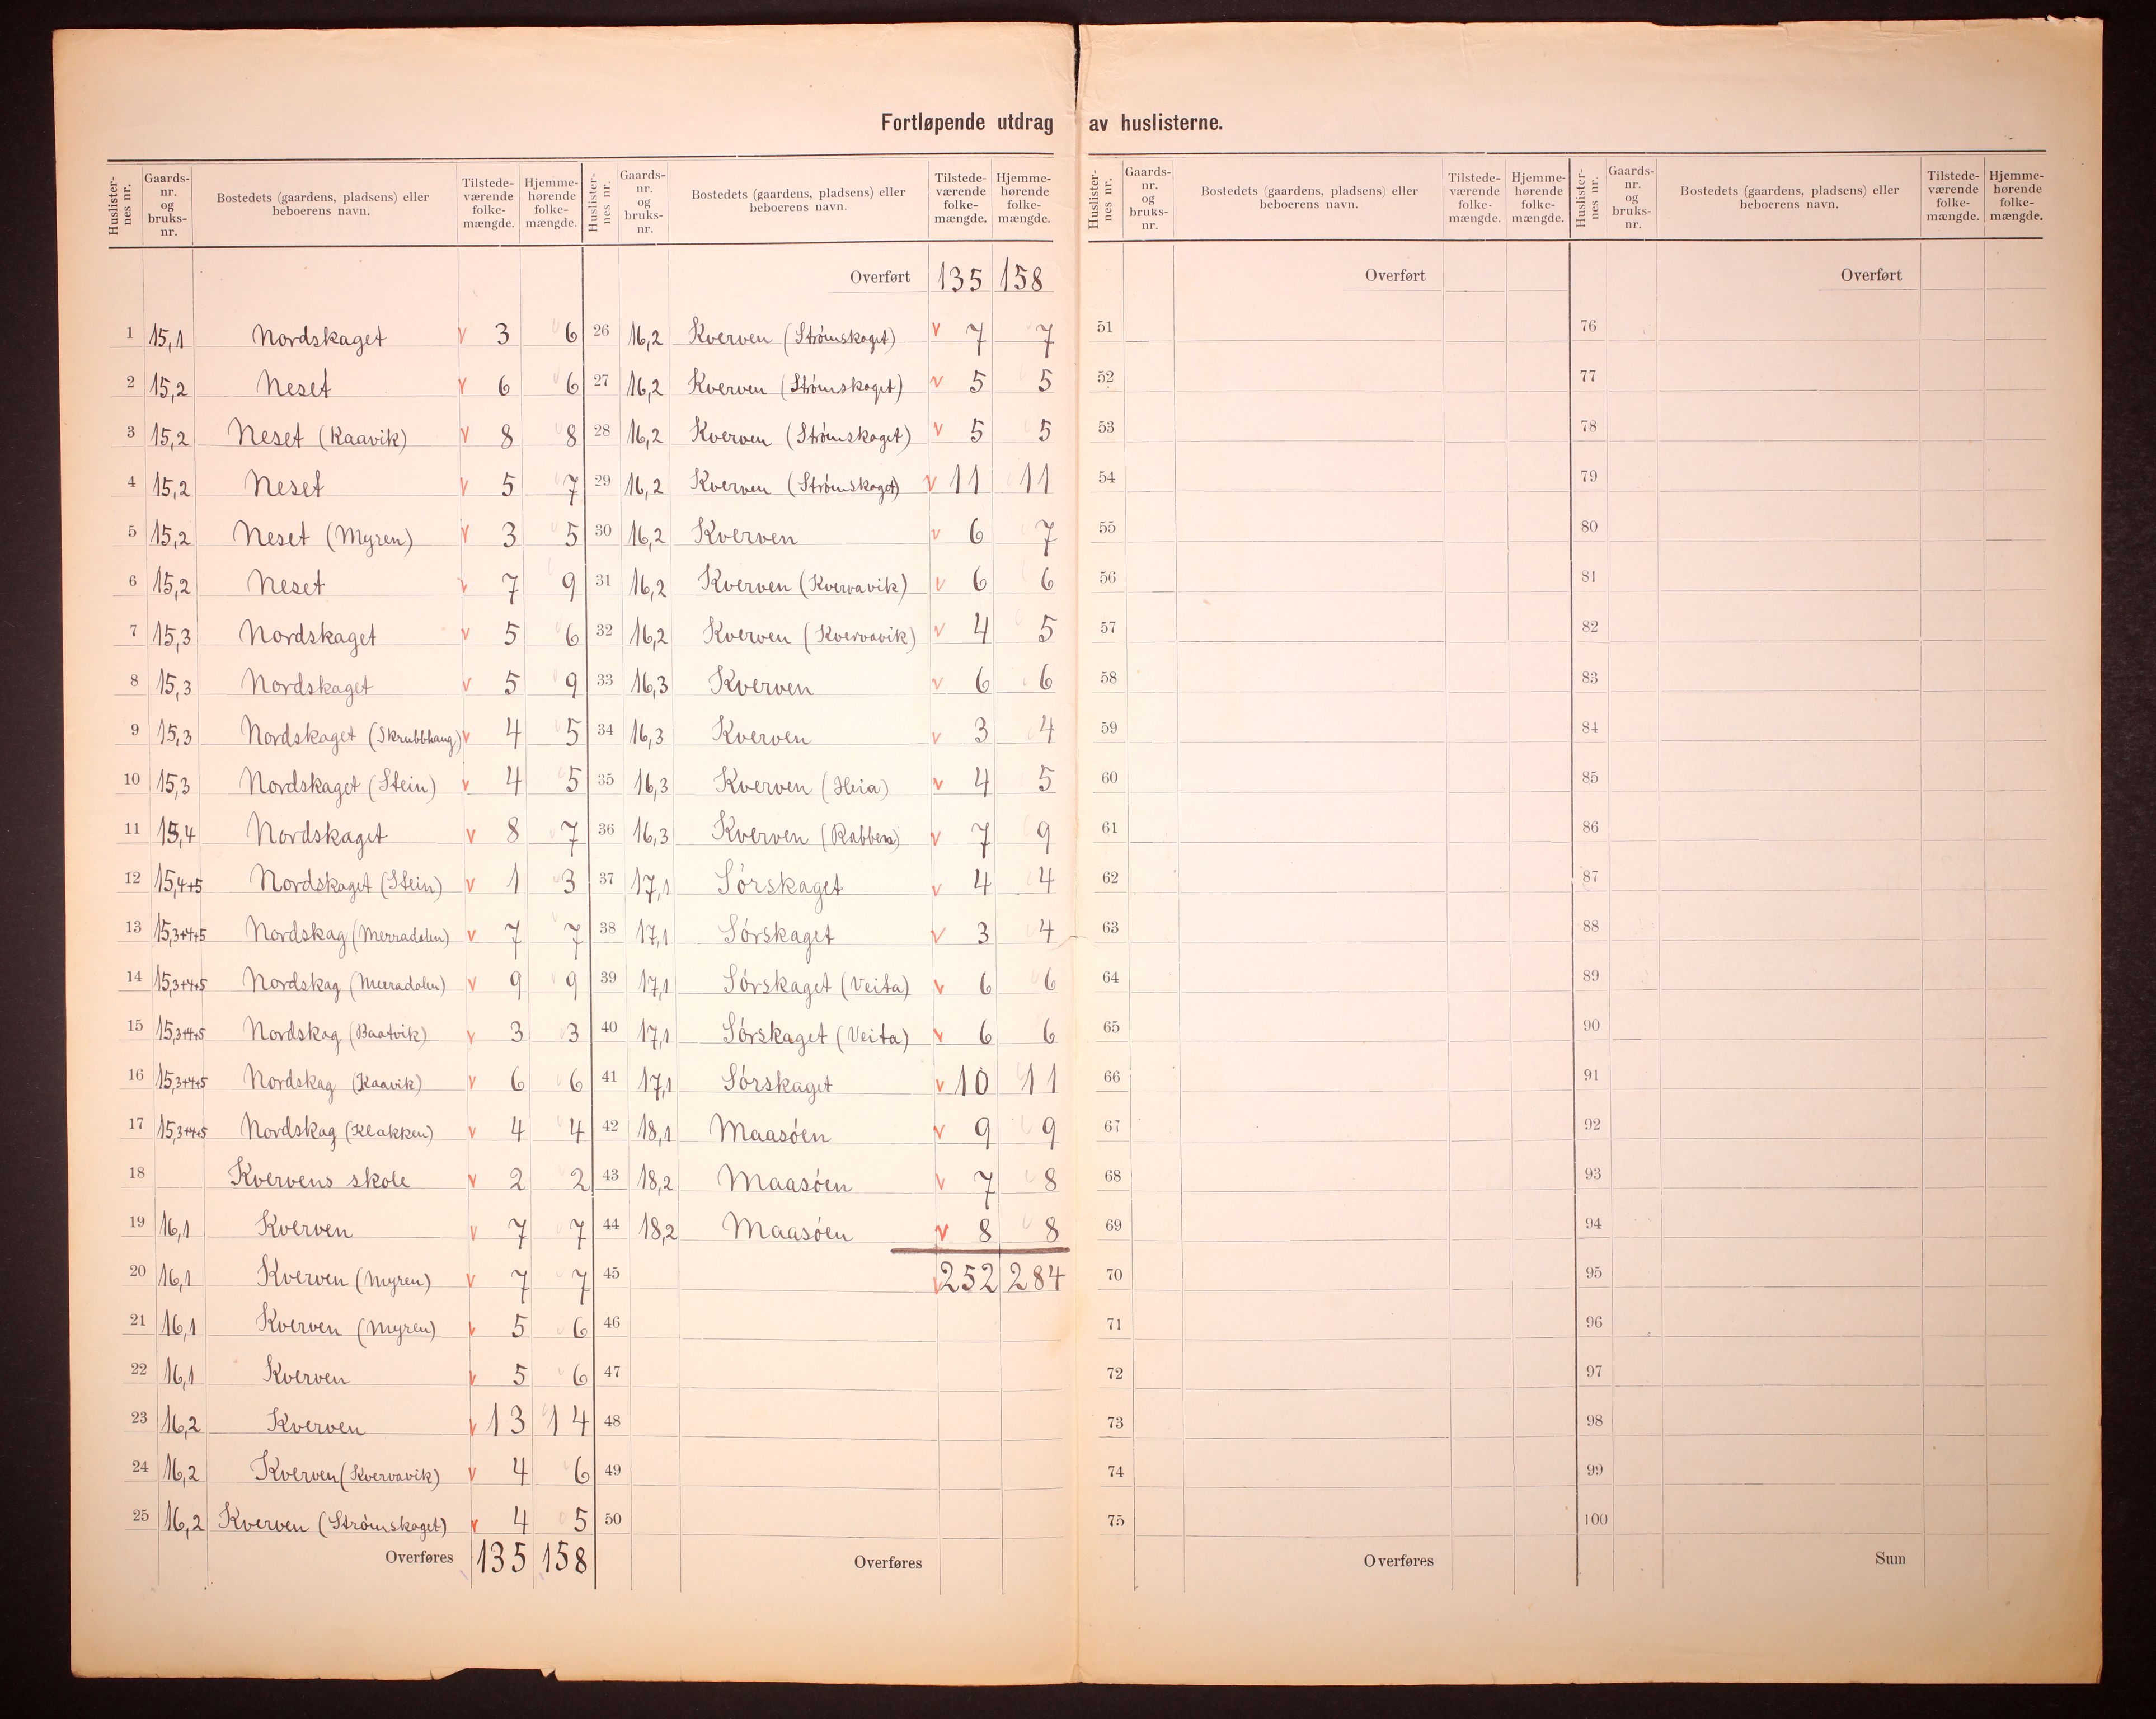 Fortløpende utdrag av huslisterne.
Huslisternes nr. Gaards-nr. og bruks-nr. Bostedets (gaardens, pladsens) eller beboerens navn. Tilstedeværende folkemængde. Hjemmehørende folkemængde.
1 15,1 Nordskaget v 3 6
2 15,2 Neset v 6 6
3 15,2 Neset (Kaavik) v 8 8
4 15,2 Neset v 5 7
5 15,2 Neset (Myren) v 3 5
6 15,2 Neset v 7 9
7 15,3 Nordskaget v 5 6
8 15,3 Nordskaget v 5 9
9 15,3 Nordskaget (Skrubbhaug) v 4 5
10 15,3 Nordskaget (Stein) v 4 5
11 15,4 Nordskaget v 8 7
12 15,4+5 Nordskaget (Stein) v 1 3
13 15,3+4+5 Nordskag (Merradalen) v 7 7
14 15,3+4+5 Nordskag (Merradalen) v 9 9
15 15,3+4+5 Nordskag (Baatvik) v 3 3
16 15,3+4+5 Nordskag (Kaavik) v 6 6
17 15,3+4+5 Nordskag (Klakken) v 4 4
18 Kvervens skole v 2 2
19 16,1 Kverven v 7 7
20 16,1 Kverven (Myren) v 7 7
21 16,1 Kverven (Myren) v 5 6
22 16,1 Kverven v 5 6
23 16,2 Kverven v 13 14
24 16,2 Kverven (Kvervavik) v 4 6
25 16,2 Kverven (Strømskaget) v 4 5
Overføres 135 158
Huslisternes nr. Gaards-nr. og bruks-nr. Bostedets (gaardens, pladsens) eller beboerens navn. Tilstedeværende folkemængde. Hjemmehørende folkemængde.
Overført 135 158
26 16,2 Kverven (Strømskaget) v 7 7
27 16,2 Kverven (Strømskaget) v 5 5
28 16,2 Kverven (Strømskaget) v 5 5
29 16,2 Kverven (Strømskaget) v 11 11
30 16,2 Kverven v 6 7
31 16,2 Kverven (Kvervavik) v 6 6
32 16,2 Kverven (Kvervavik) v 4 5
33 16,3 Kverven v 6 6
34 16,3 Kverven v 3 4
35 16,3 Kverven (Heia) v 4 5
36 16,3 Kverven (Rabben) v 7 9
37 17,1 Sørskaget v 4 4
38 17,1 Sørskaget v 3 4
39 17,1 Sørskaget (Veita) v 6 6
40 17,1 Sørskaget (Veita) v 6 6
41 17,1 Sørskaget v 10 11
42 18,1 Maasøen v 9 9
43 18,2 Maasøen v 7 8
44 18,2 Maasøen v 8 8
45 v 252 284
46
47
48
49
50
Overføres
Huslisternes nr. Gaards-nr. og bruks-nr. Bostedets (gaardens, pladsens) eller beboerens navn. Tilstedeværende folkemængde. Hjemmehørende folkemængde.
Overført
51
52
53
54
55
56
57
58
59
60
61
62
63
64
65
66
67
68
69
70
71
72
73
74
75
Overføres
Huslisternes nr. Gaards-nr. og bruks-nr. Bostedets (gaardens, pladsens) eller beboerens navn. Tilstedeværende folkemængde. Hjemmehørende folkemængde.
Overført
76
77
78
79
80
81
82
83
84
85
86
87
88
89
90
91
92
93
94
95
96
97
98
99
100
Sum